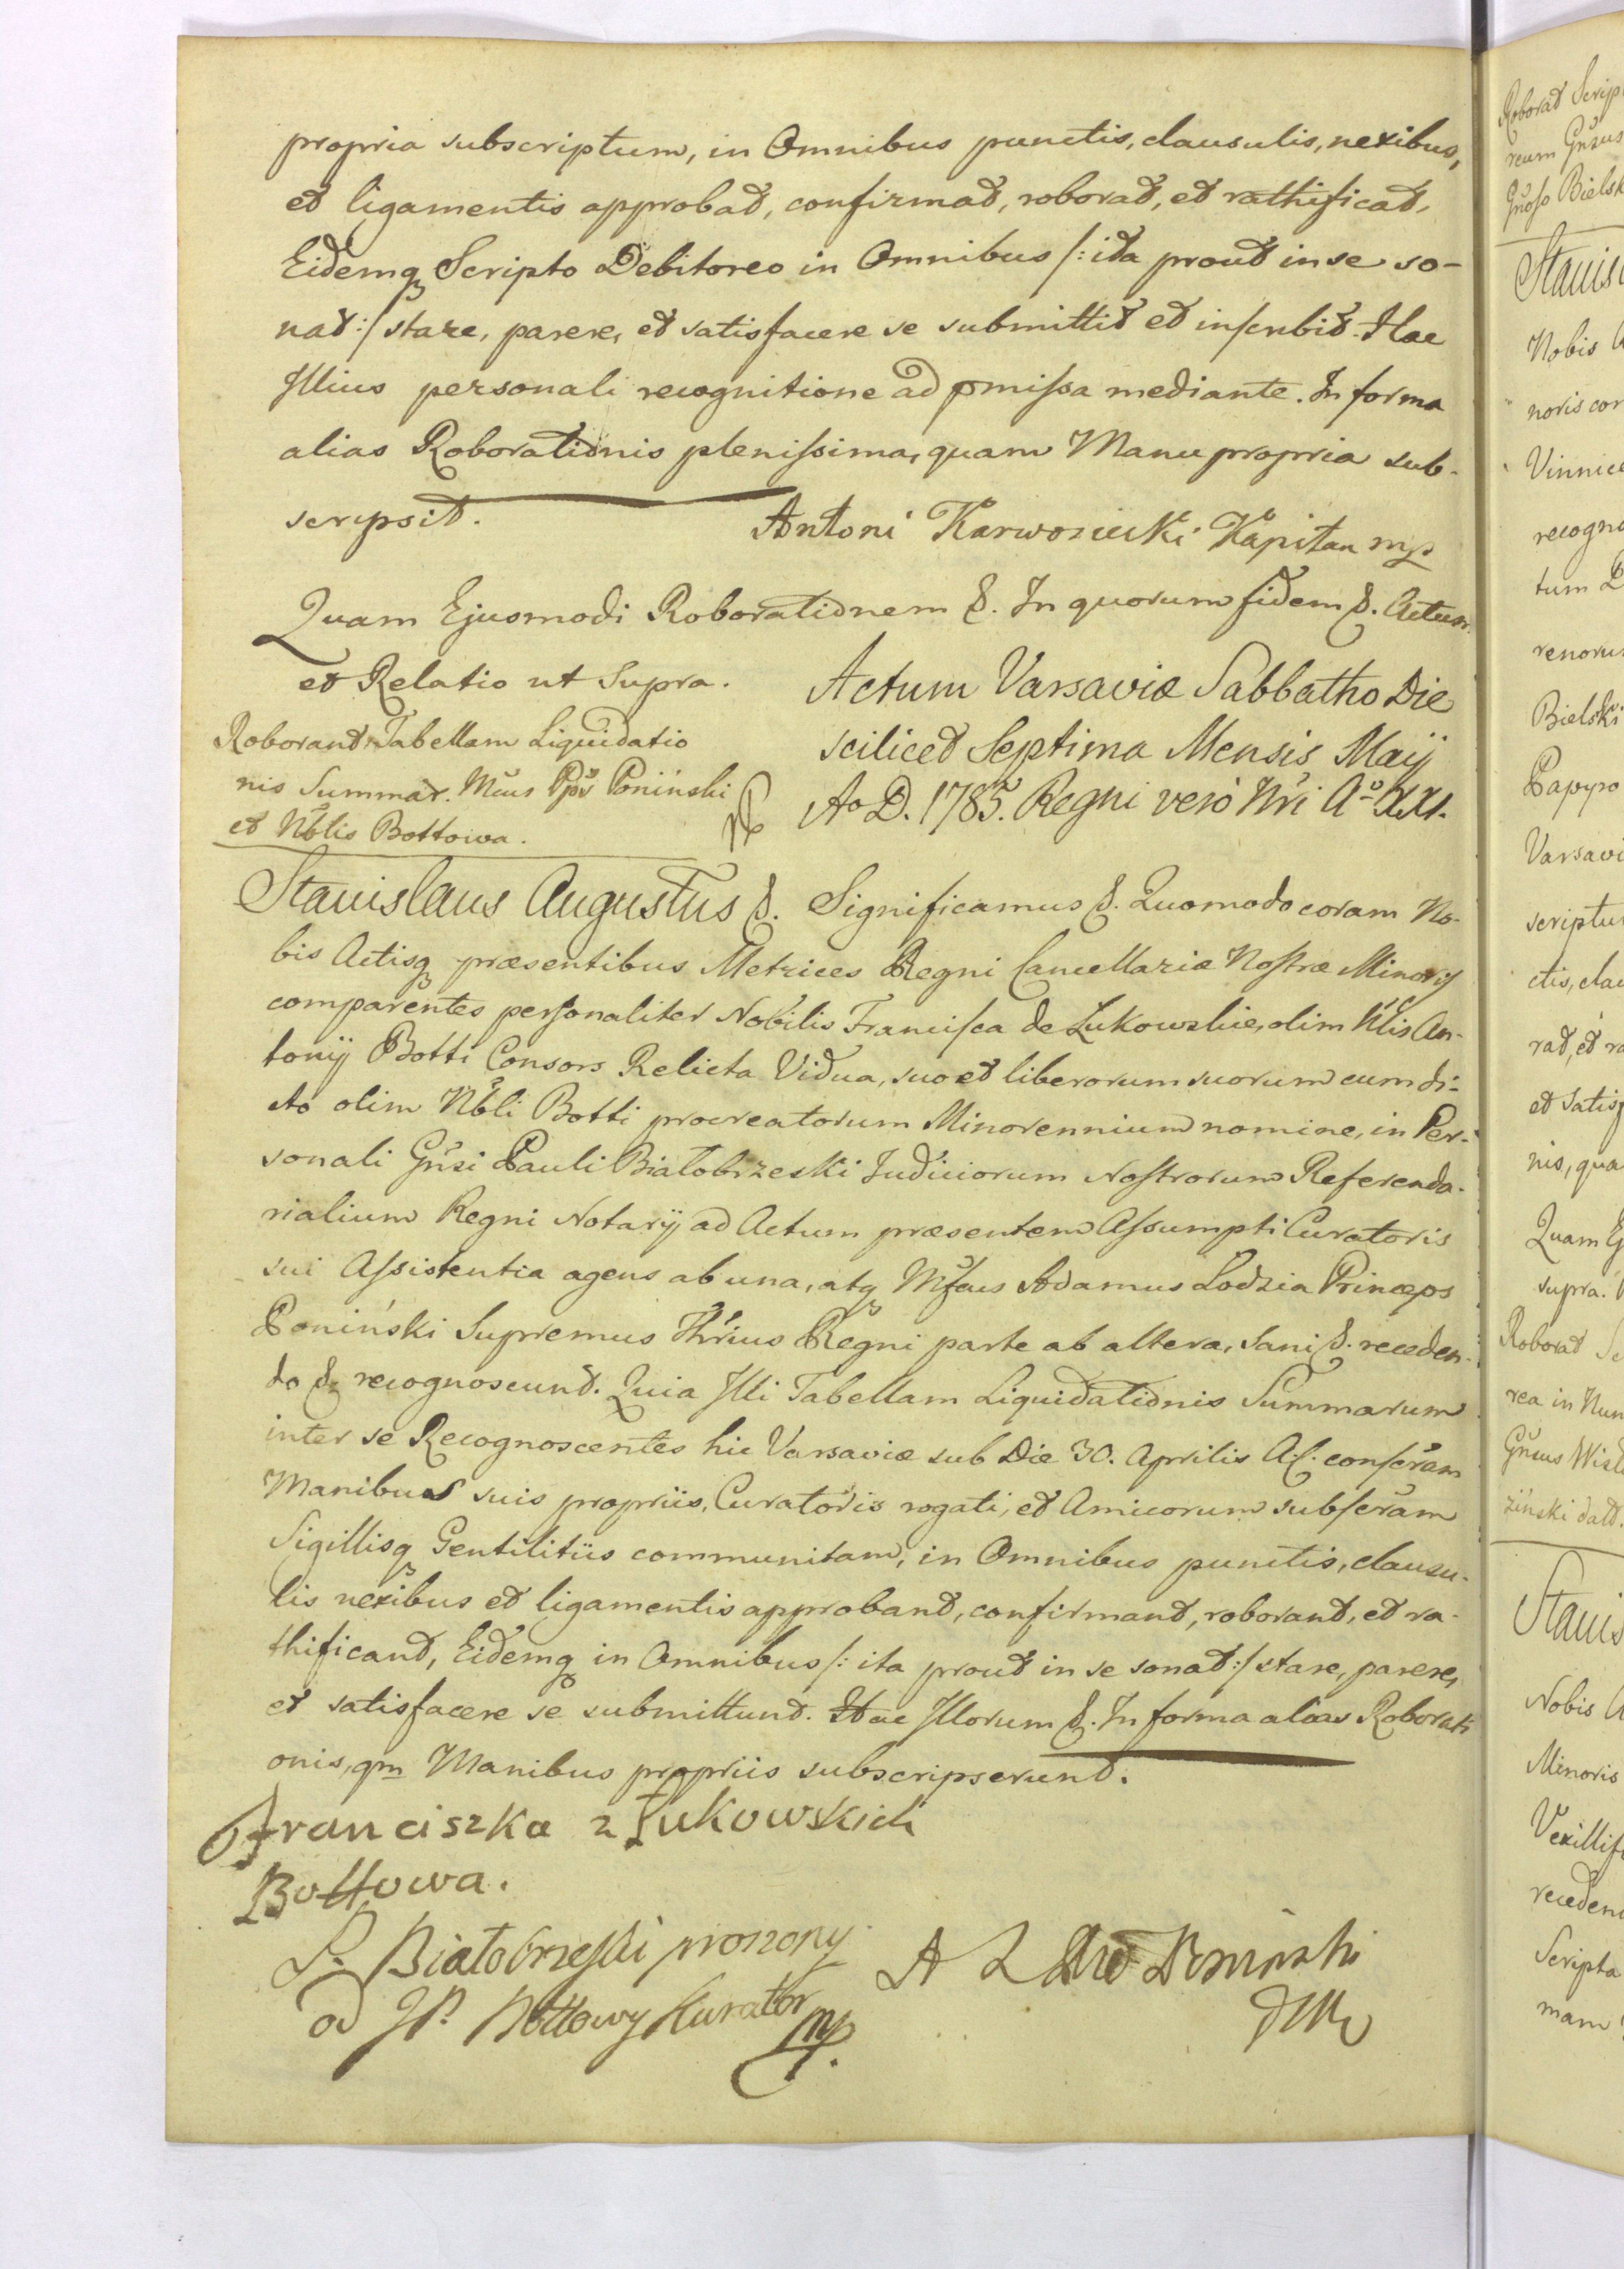 propria subscriptum, in Omnibus punctis, clausulis, nexibus,
et ligamentis approbat, confirmat, roborat, et rathificat,
Eidemq Scripto Debitoreo in Omnibus /: ita prout in se so-
nat :/ stare, parere, et satisfacere se submittit et inscribit. Hac
Illius personali recognitione ad pmissa mediante. In forma
alias Roborationis plenissima, quam Manu propria sub-
scripsit.
Antoni Karwosiecki Kapitan mp
Quam Ejusmodi Roborationem &. In quorum fidem &. Actum
et Relatio ut Supra.
Actum Varsaviæ Sabbatho Die
scilicet Septima Mensis Maij
Ao D. 1785. Regni verò Nri Aº XXI.
Roborant Tabellam Liquidatio
nis Summar. Mcus Poniński
et Nblis Bottowa.
Stanislaus Augustus &. Significamus &. Quomodo coram No-
bis Actisq præsentibus Metrices Regni Cancellariæ Nostræ Minoris
comparentes personaliter Nobilis Francisca de Lukowskie, olim Nlis An-
tonij Botti Consors Relicta Vidua, suo et liberorum suorum cum di-
cto olim Nbli Botti procreatorum Minorennium nomine, in Per-
sonali Gnsi Pauli Białobrzeski Judiciorum Nostrorum Referenda-
rialium Regni Notarij ad Actum præsentem Assumpti Curatoris
sui Assistentia agens ab una, atq Mfcus Adamus Lodzia Princeps
Poniński Supremus Thrius Regni parte ab altera, Sani &. receden-
do &. recognoscunt. Quia Illi Tabellam Liquidationis Summarum
inter se Recognoscentes hic Varsaviæ sub Die 30. Aprilis Ac. conscram
Manibus suis propriis, Curatoris rogati, et Amicorum subscram
Sigillisq Gentilitiis communitam, in Omnibus punctis, clausu-
lis nexibus et ligamentis approbant, confirmant, roborant, et ra-
thificant, Eidemq in Omnibus /: ita prout in se sonat :/ stare, parere,
et satisfacere se submittunt. Hac Illorum &. In forma alias Roborati
onis, qm Manibus propriis subscripserunt.
Franciszka z Łukowskich
Bottowa.
P. Białobrzeski proszony
od JP. Bottowy Kurator
mp.
A Ł Poniński
Roborat Scrip
reum Gnsus
Gnoso Bielsk
Stanisl
Nobis A
noris cor
Vinnice
recogno
tum D
renoru
Bielski
Papyro
Varsavi
scriptu
ctis, clau
rat, et ra
et satisf
nis, qua
Quam Ej
supra.
Roborat Sc
rea in Nun
Gnsus Wisl
ziński dat.
Stanis
Nobis A
Minoris
Vexillife
receden
Scripta
mam